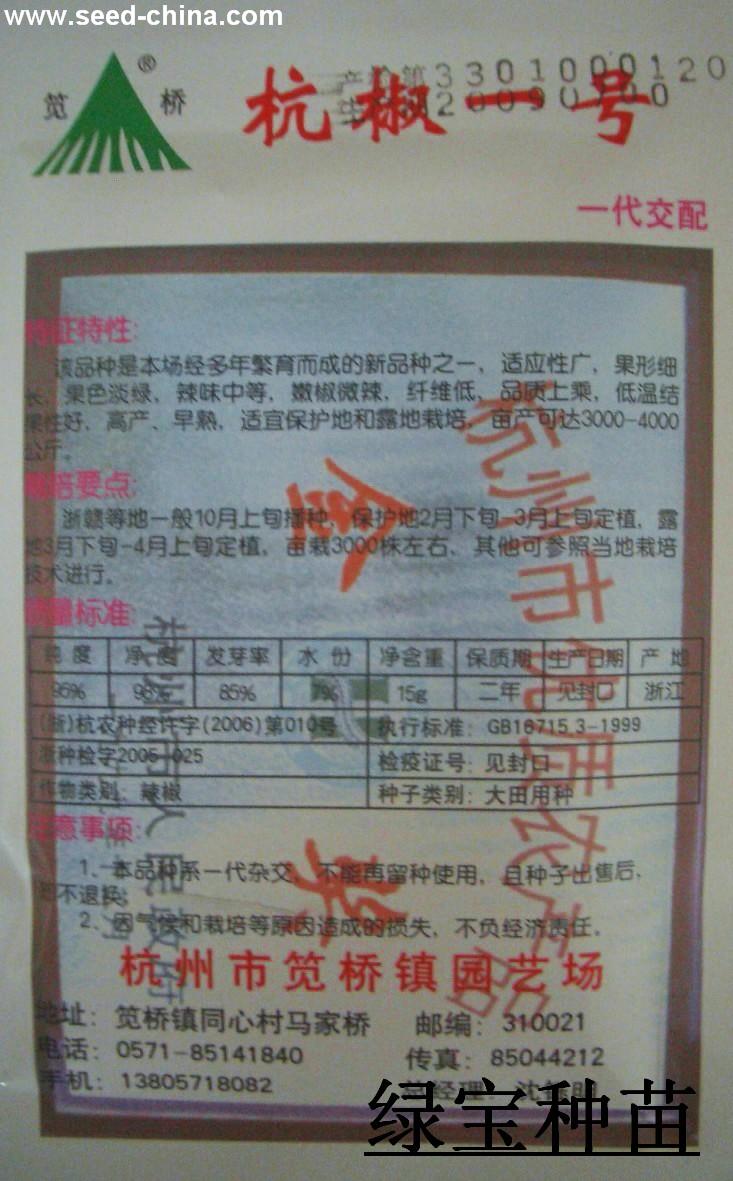 www.seed-china.com
笕 ® 桥
产检第3301000120
杭椒一号
一代交配
特征特性:
该品种是本场经多年繁育而成的新品种之一，适应性广，果形细
长，果色淡绿，辣味中等，嫩椒微辣，纤维低，品质上乘，低温结
果性好，高产、早熟，适宜保护地和露地栽培，亩产可达3000-4000
公斤。
栽培要点:
浙赣等地一般10月上旬播种，保护地2月下旬-3月上旬定植，露
地3月下旬-4月上旬定植，亩栽3000株左右，其他可参照当地栽培
技术进行。
质量标准:
纯度 净度 发芽率 水份 净含量 保质期 生产日期 产地
95% 98% 85% 7% 15g 二年 见封口 浙江
(浙)杭农种经许字(2006)第010号 执行标准：GB16715.3-1999
浙种检字2005-025
检疫证号：见封口
作物类别：辣椒 种子类别：大田用种
注意事项:
1、本品种系一代杂交，不能再留种使用，且种子出售后，
恕不退换;
2、因气候和栽培等原因造成的损失，不负经济责任。
杭州市笕桥镇园艺场
地址：笕桥镇同心村马家桥 邮编：310021
电话：0571-85141840 传真：85044212
手机：13805718082 总经理：沈
金奖
杭州市优质农产品
杭州市人民政府
绿宝种苗